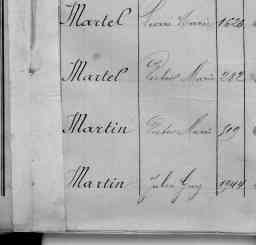 Martel Pierre Marie 1626
Martel Marie 282
Martin Marie 919
Martin Jules Guy 1944